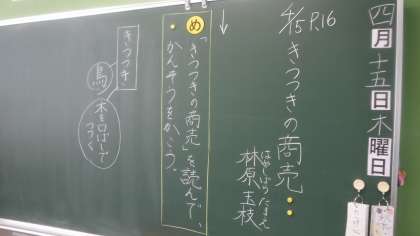 四月十五日木曜日
4/15 P.16
きつつきの商売
はやしばらたまえ
林原玉枝
め
「きつつきの商売」を読んで、
かんそうをかこう。
きつつき
鳥
木を口ばしで
つつく